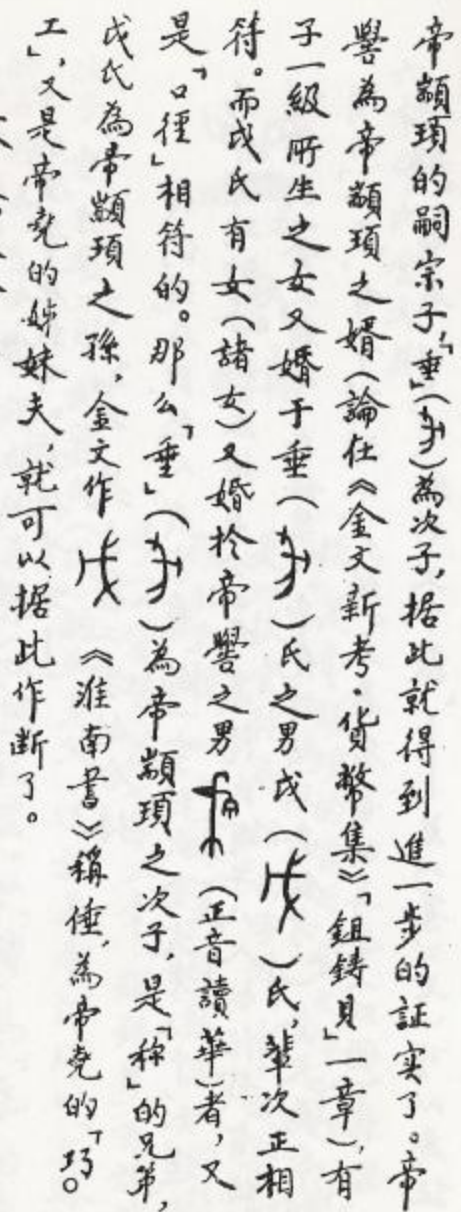 帝顓頊的嗣宗子,「垂」()為次子,据此就得到進一步的証实了。帝
嚳為帝顓頊之婿(論在《金文新考·貨幣集》「鉏鑄貝」一章),有
子一級所生之女又婚于垂()氏之男戉()氏,輩次正相
符。而戉氏有女(諸女)又婚於帝嚳之男(正音讀華)者,又
是「口徑」相符的。那么「垂」()為帝顓頊之次子,是「称」的兄弟,
戉氏為帝顓頊之孫,金文作《淮南書》稱倕,為帝堯的「巧。
工」,又是帝堯的姊妹夫,就可以据此作断了。